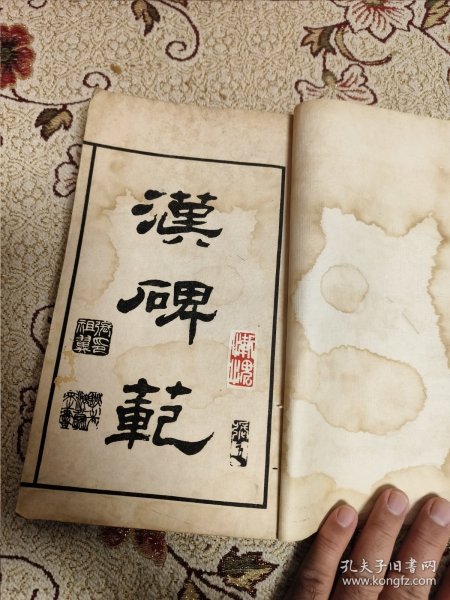 漢碑範
張印祖翼
孔夫子旧书网
www.kongfz.com